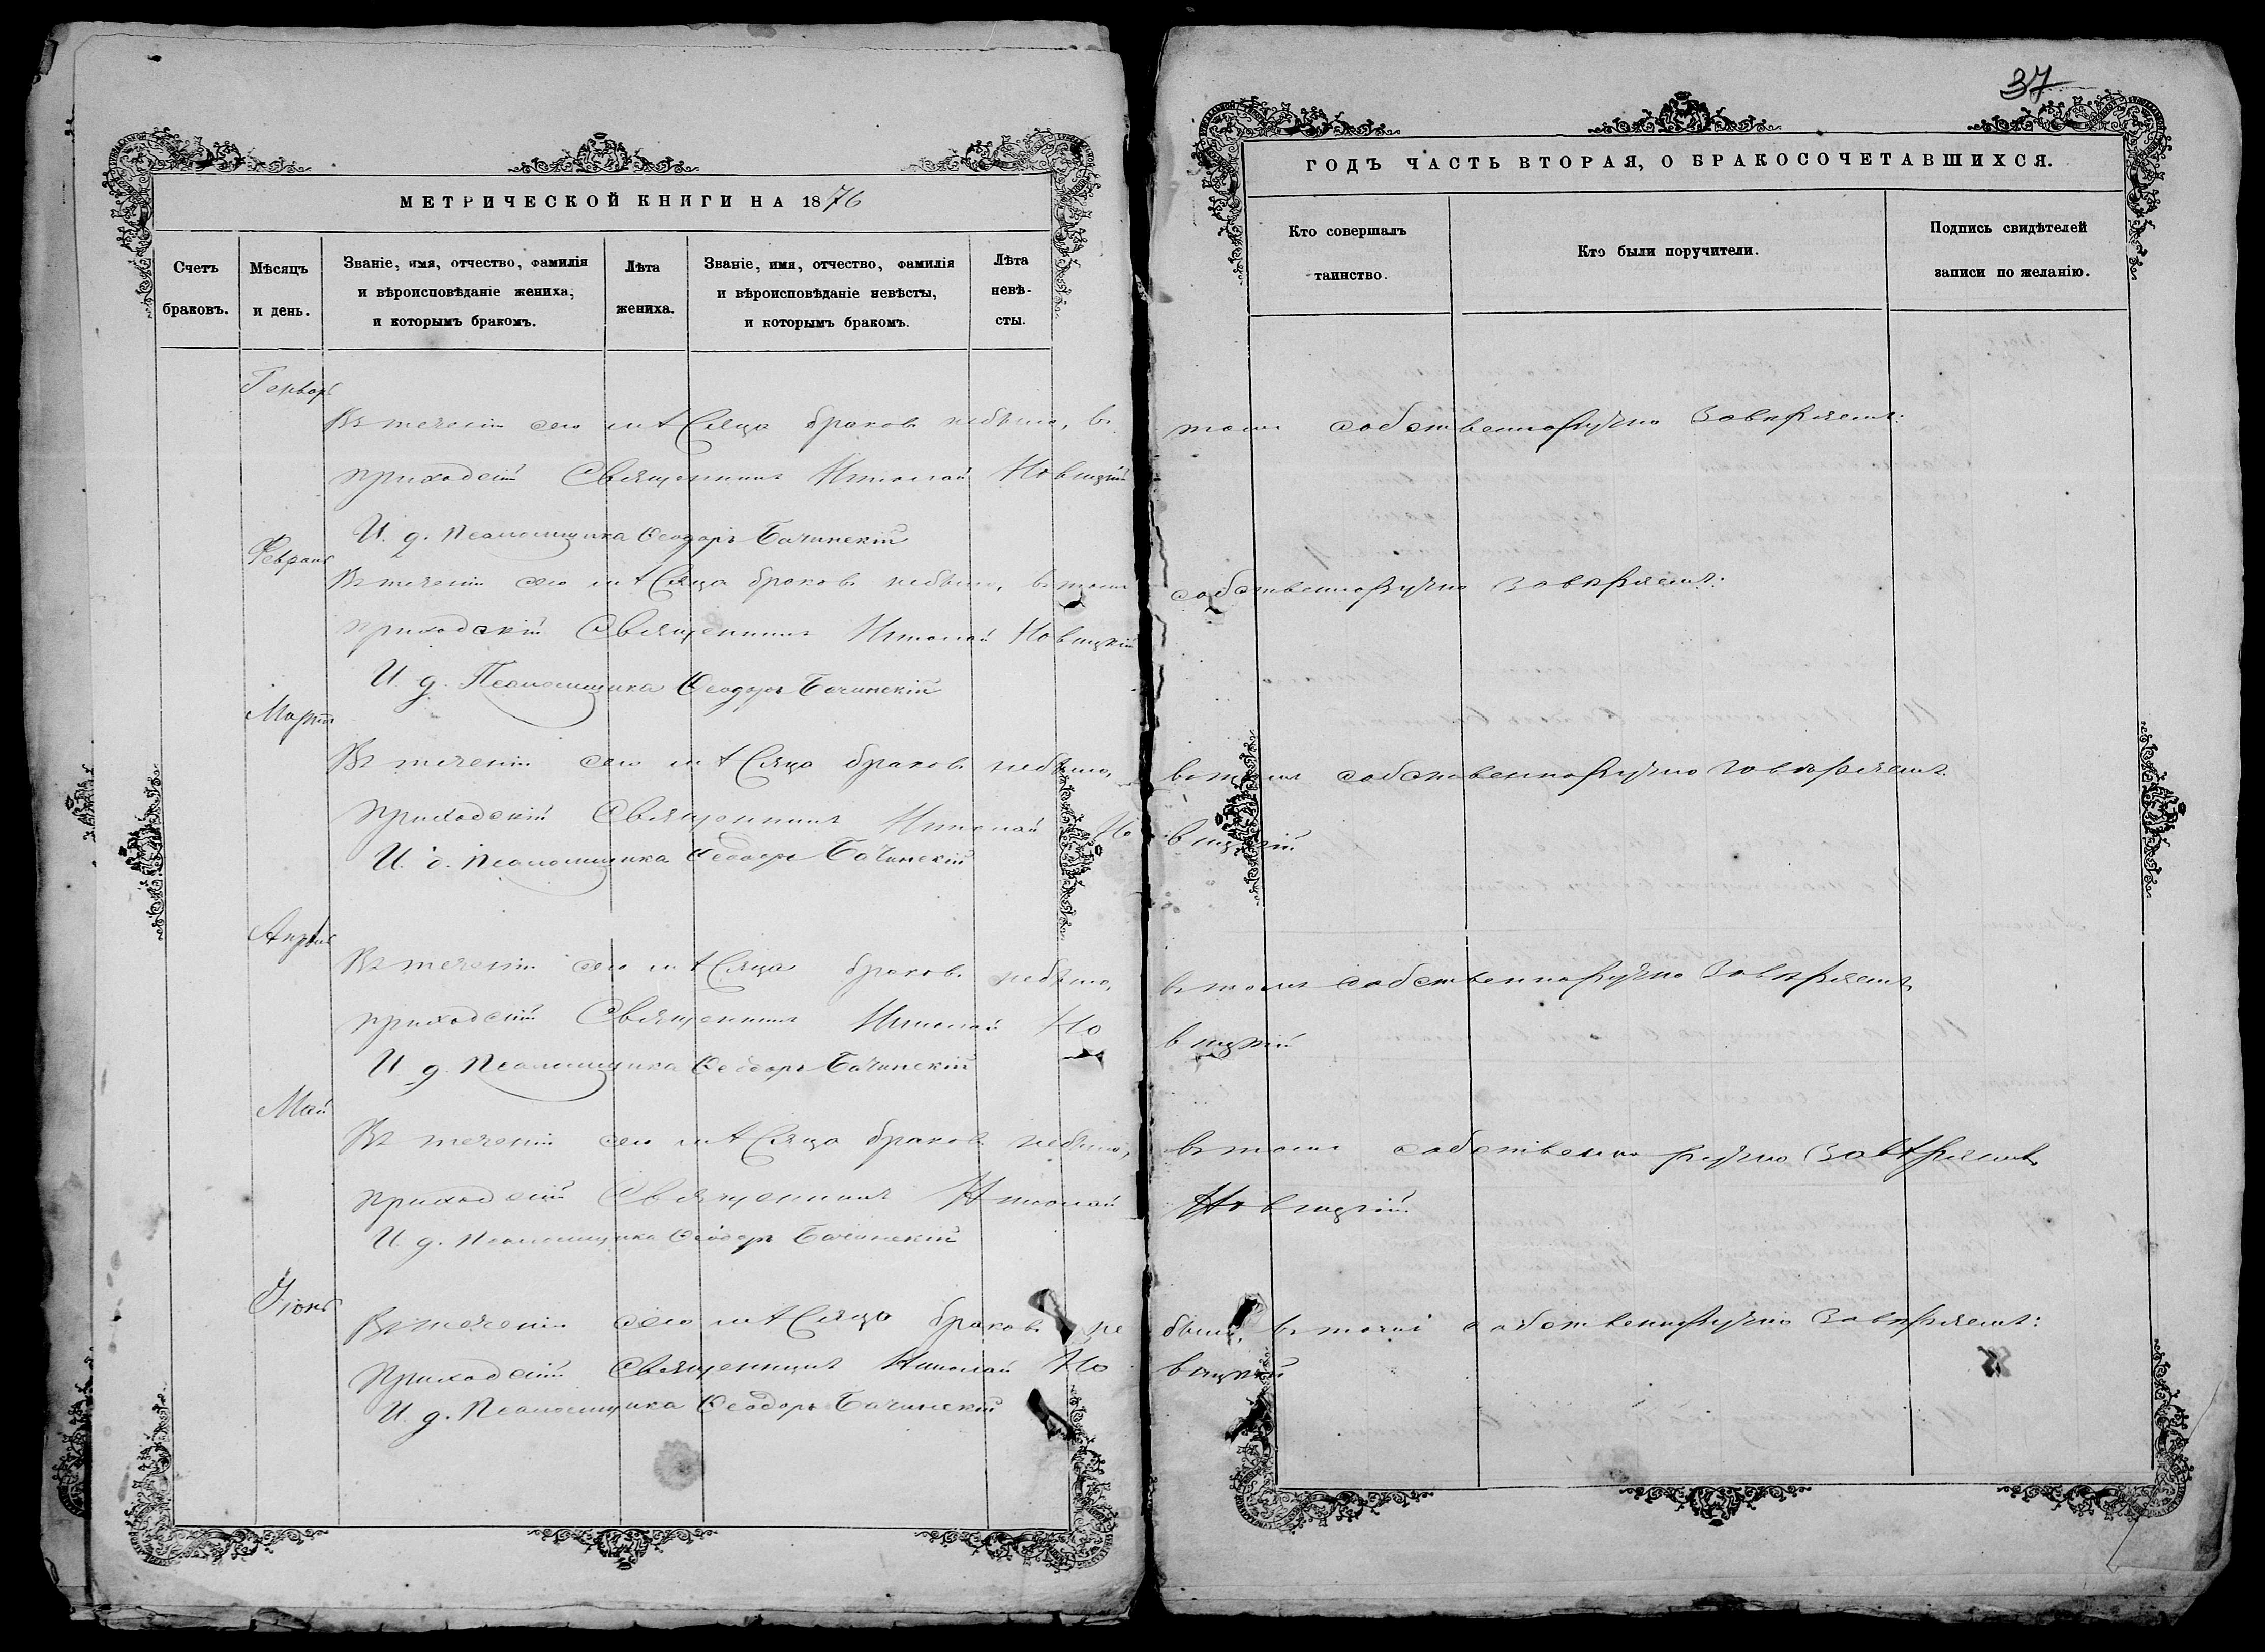 37
МЕТРИЧЕСКОЙ КНИГИ НА 1876
ГОДЪ ЧАСТЬ ВТОРАЯ, О БРАКОСОЧЕТАВШИХСЯ.
Счетъ браковъ.
Мѣсяцъ и день.
Званіе, имя, отчество, фамилія
и вѣроисповѣданіе жениха,
и которымъ бракомъ.
Лѣта жениха.
Званіе, имя, отчество, фамилія
и вѣроисповѣданіе невѣсты,
и которымъ бракомъ.
Лѣта невѣ-
сты.
Кто совершалъ
таинство.
Кто были поручители.
Подпись свидѣтелей
записи по желанію.
Генварь
Въ теченіи сего мѣсяца браковъ небыло, въ томъ собственноручно завѣряемъ:
приходскій Священникъ Николай Новицкій
И. д. Псаломщика Ѳеодоръ Бачинскій
Февраль
Въ теченіи сего мѣсяца браковъ небыло, въ томъ собственноручно завѣряемъ:
приходскій Священникъ Николай Новицкій
И. д. Псаломщика Ѳеодоръ Бачинскій
Мартъ
Въ теченіи сего мѣсяца браковъ небыло, въ томъ собственноручно завѣряемъ.
приходскій Священникъ Николай Новицкій
И. д. Псаломщика Ѳеодоръ Бачинскій
Апрѣль
Въ теченіи сего мѣсяца браковъ небыло, въ томъ собственноручно завѣряемъ
приходскій Священникъ Николай Новицкій
И. д. Псаломщика Ѳеодоръ Бачинскій
Май
Въ теченіи сего мѣсяца браковъ небыло, въ томъ собственноручно завѣряемъ
приходскій Священникъ Николай Новицкій
И. д. Псаломщика Ѳеодоръ Бачинскій
Іюнь
Въ теченіи сего мѣсяца браковъ небыло, въ томъ собственноручно завѣряемъ:
приходскій Священникъ Николай Новицкій
И. д. Псаломщика Ѳеодоръ Бачинскій